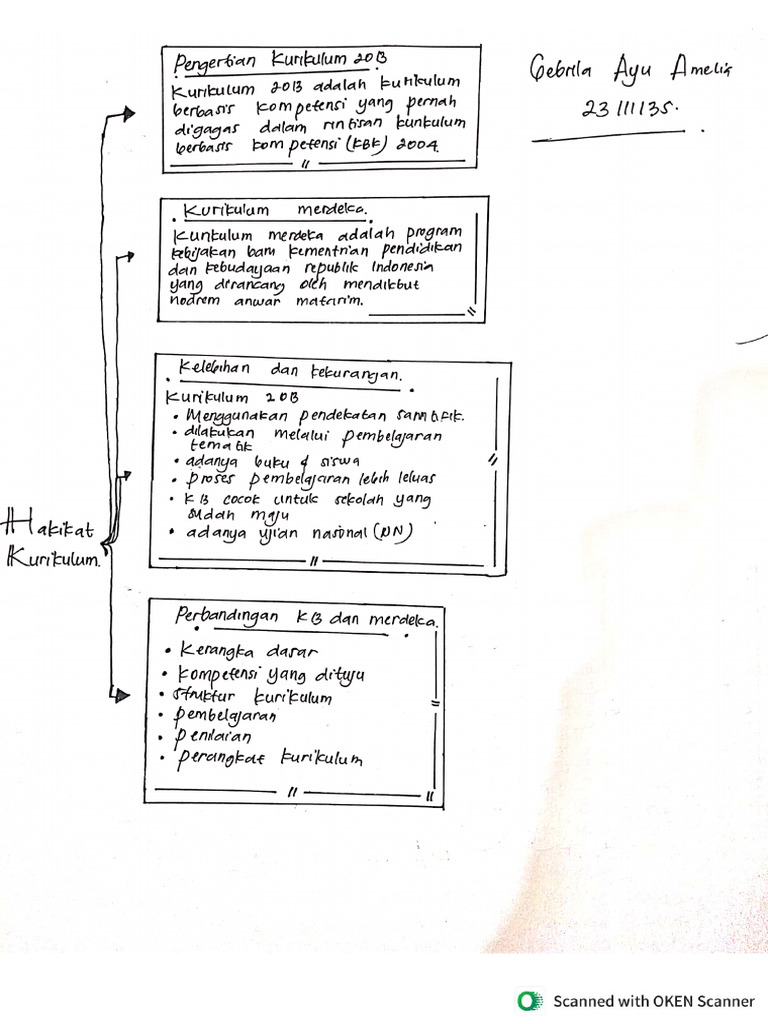 Pengertian Kurikulum 2013
Kurikulum 2013 adalah kurikulum
berbasis kompetensi yang pernah
digagas dalam rintisan kurikulum
berbasis kompetensi (KBK) 2004.
Gebrila Ayu Amelia
23111135.
Kurikulum merdeka.
Kurikulum merdeka adalah program
kebijakan baru kementrian pendidikan
dan kebudayaan republik Indonesia
yang dirancang oleh mendikbut
nadiem anwar makarim.
Kelebihan dan kekurangan.
Kurikulum 2013
• Menggunakan pendekatan saintifik.
• dilakukan melalui pembelajaran
tematik
• adanya buku siswa
• proses pembelajaran lebih leluas
• K13 cocok untuk sekolah yang
sudah maju
• adanya ujian nasional (UN)
Hakikat
Kurikulum.
Perbandingan K13 dan merdeka.
• Kerangka dasar
• kompetensi yang dituju
• struktur kurikulum
• pembelajaran
• penilaian
• perangkat kurikulum
Scanned with OKEN Scanner